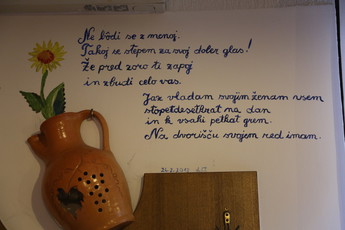 Ne bôdi se z menoj.
Takoj se stepem za svoj dober glas!
Že pred zoro ti zapoj
in zbudi celo vas.
Jaz vladam svojim ženam vsem
stopetdesetkrat na dan
in k vsaki petkat grem.
Na dvorišču svojem red imam.